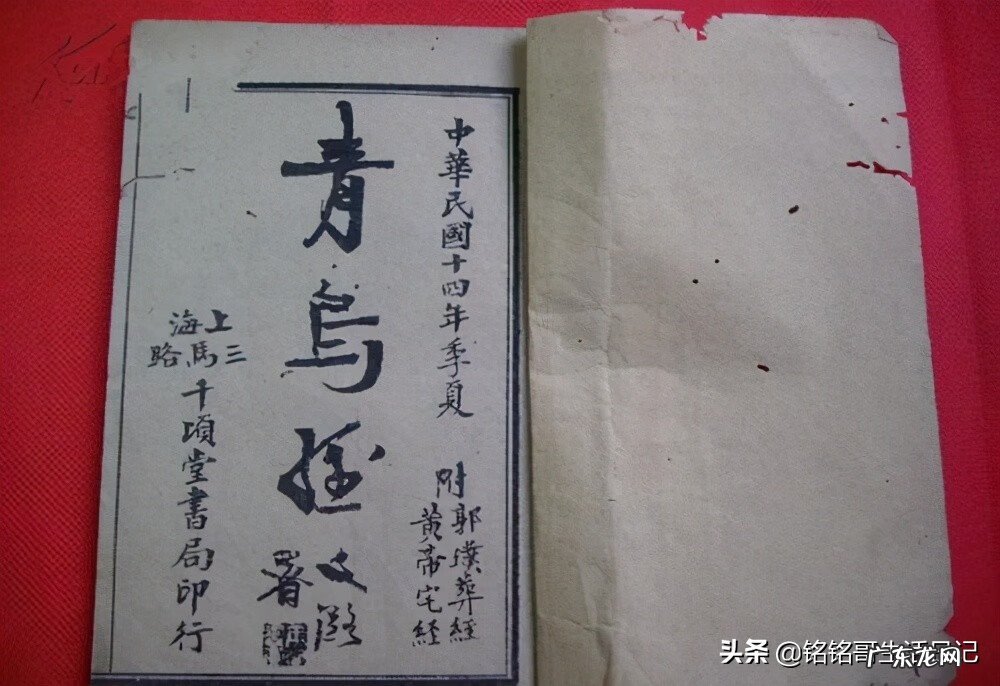 中華民國十四年季夏
附郭璞葬經
黃帝宅經
青烏經
署
上海
三馬路
千頃堂書局印行
头条 @铭铭哥生活日记
广东龙网